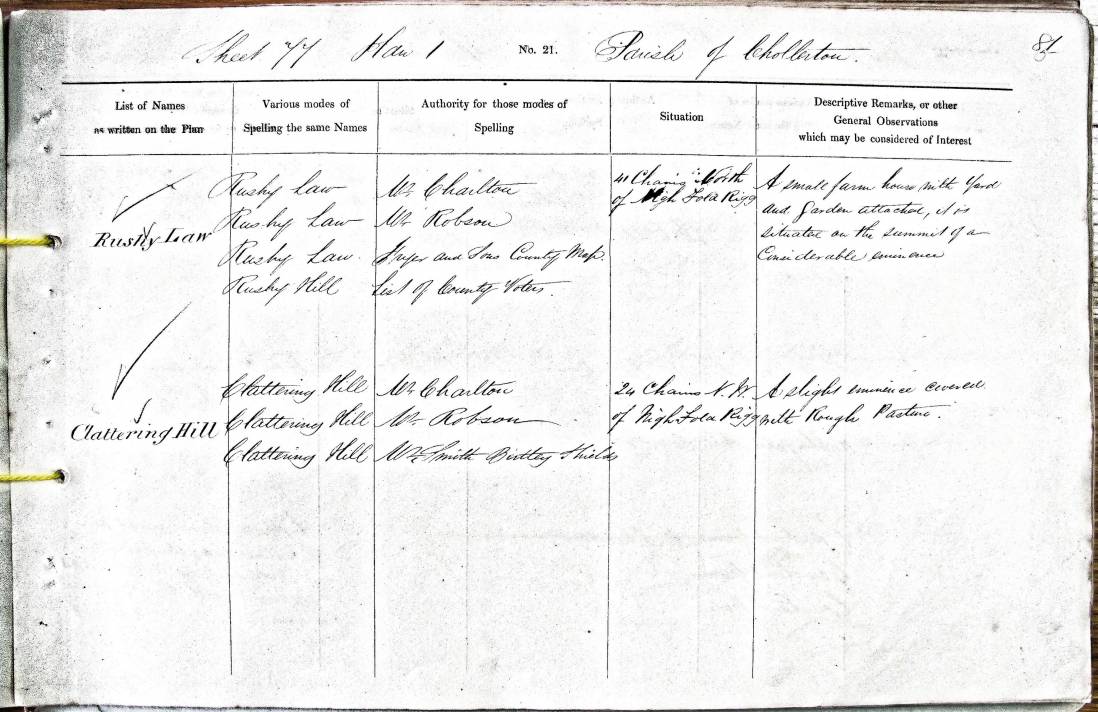 Sheet 77 Plan 1 No. 21. Parish of Chollerton. 81
List of Names
as written on the Plan
Various modes of
Spelling the same Names
Authority for those modes of
Spelling
Situation
Descriptive Remarks, or other
General Observations
which may be considered of Interest
Rushy Law
Rushy Law
Rushy Law
Rushy Law.
Rushy Hill
Mr. Charlton
Mr. Robson
Fryer and Sons County Map.
List of County Voters.
41 Chains North
of High Fold Rigg
A small farm house with Yard
and Garden attached, it is
situate on the summit of a
Considerable eminence
Clattering Hill
Clattering Hill
Clattering Hill
Clattering Hill
Mr. Charlton
Mr. Robson
Mr. Smith Birtley Shields
24 Chains N.W.
of High Fold Rigg
A slight eminence covered
with Rough Pasture.